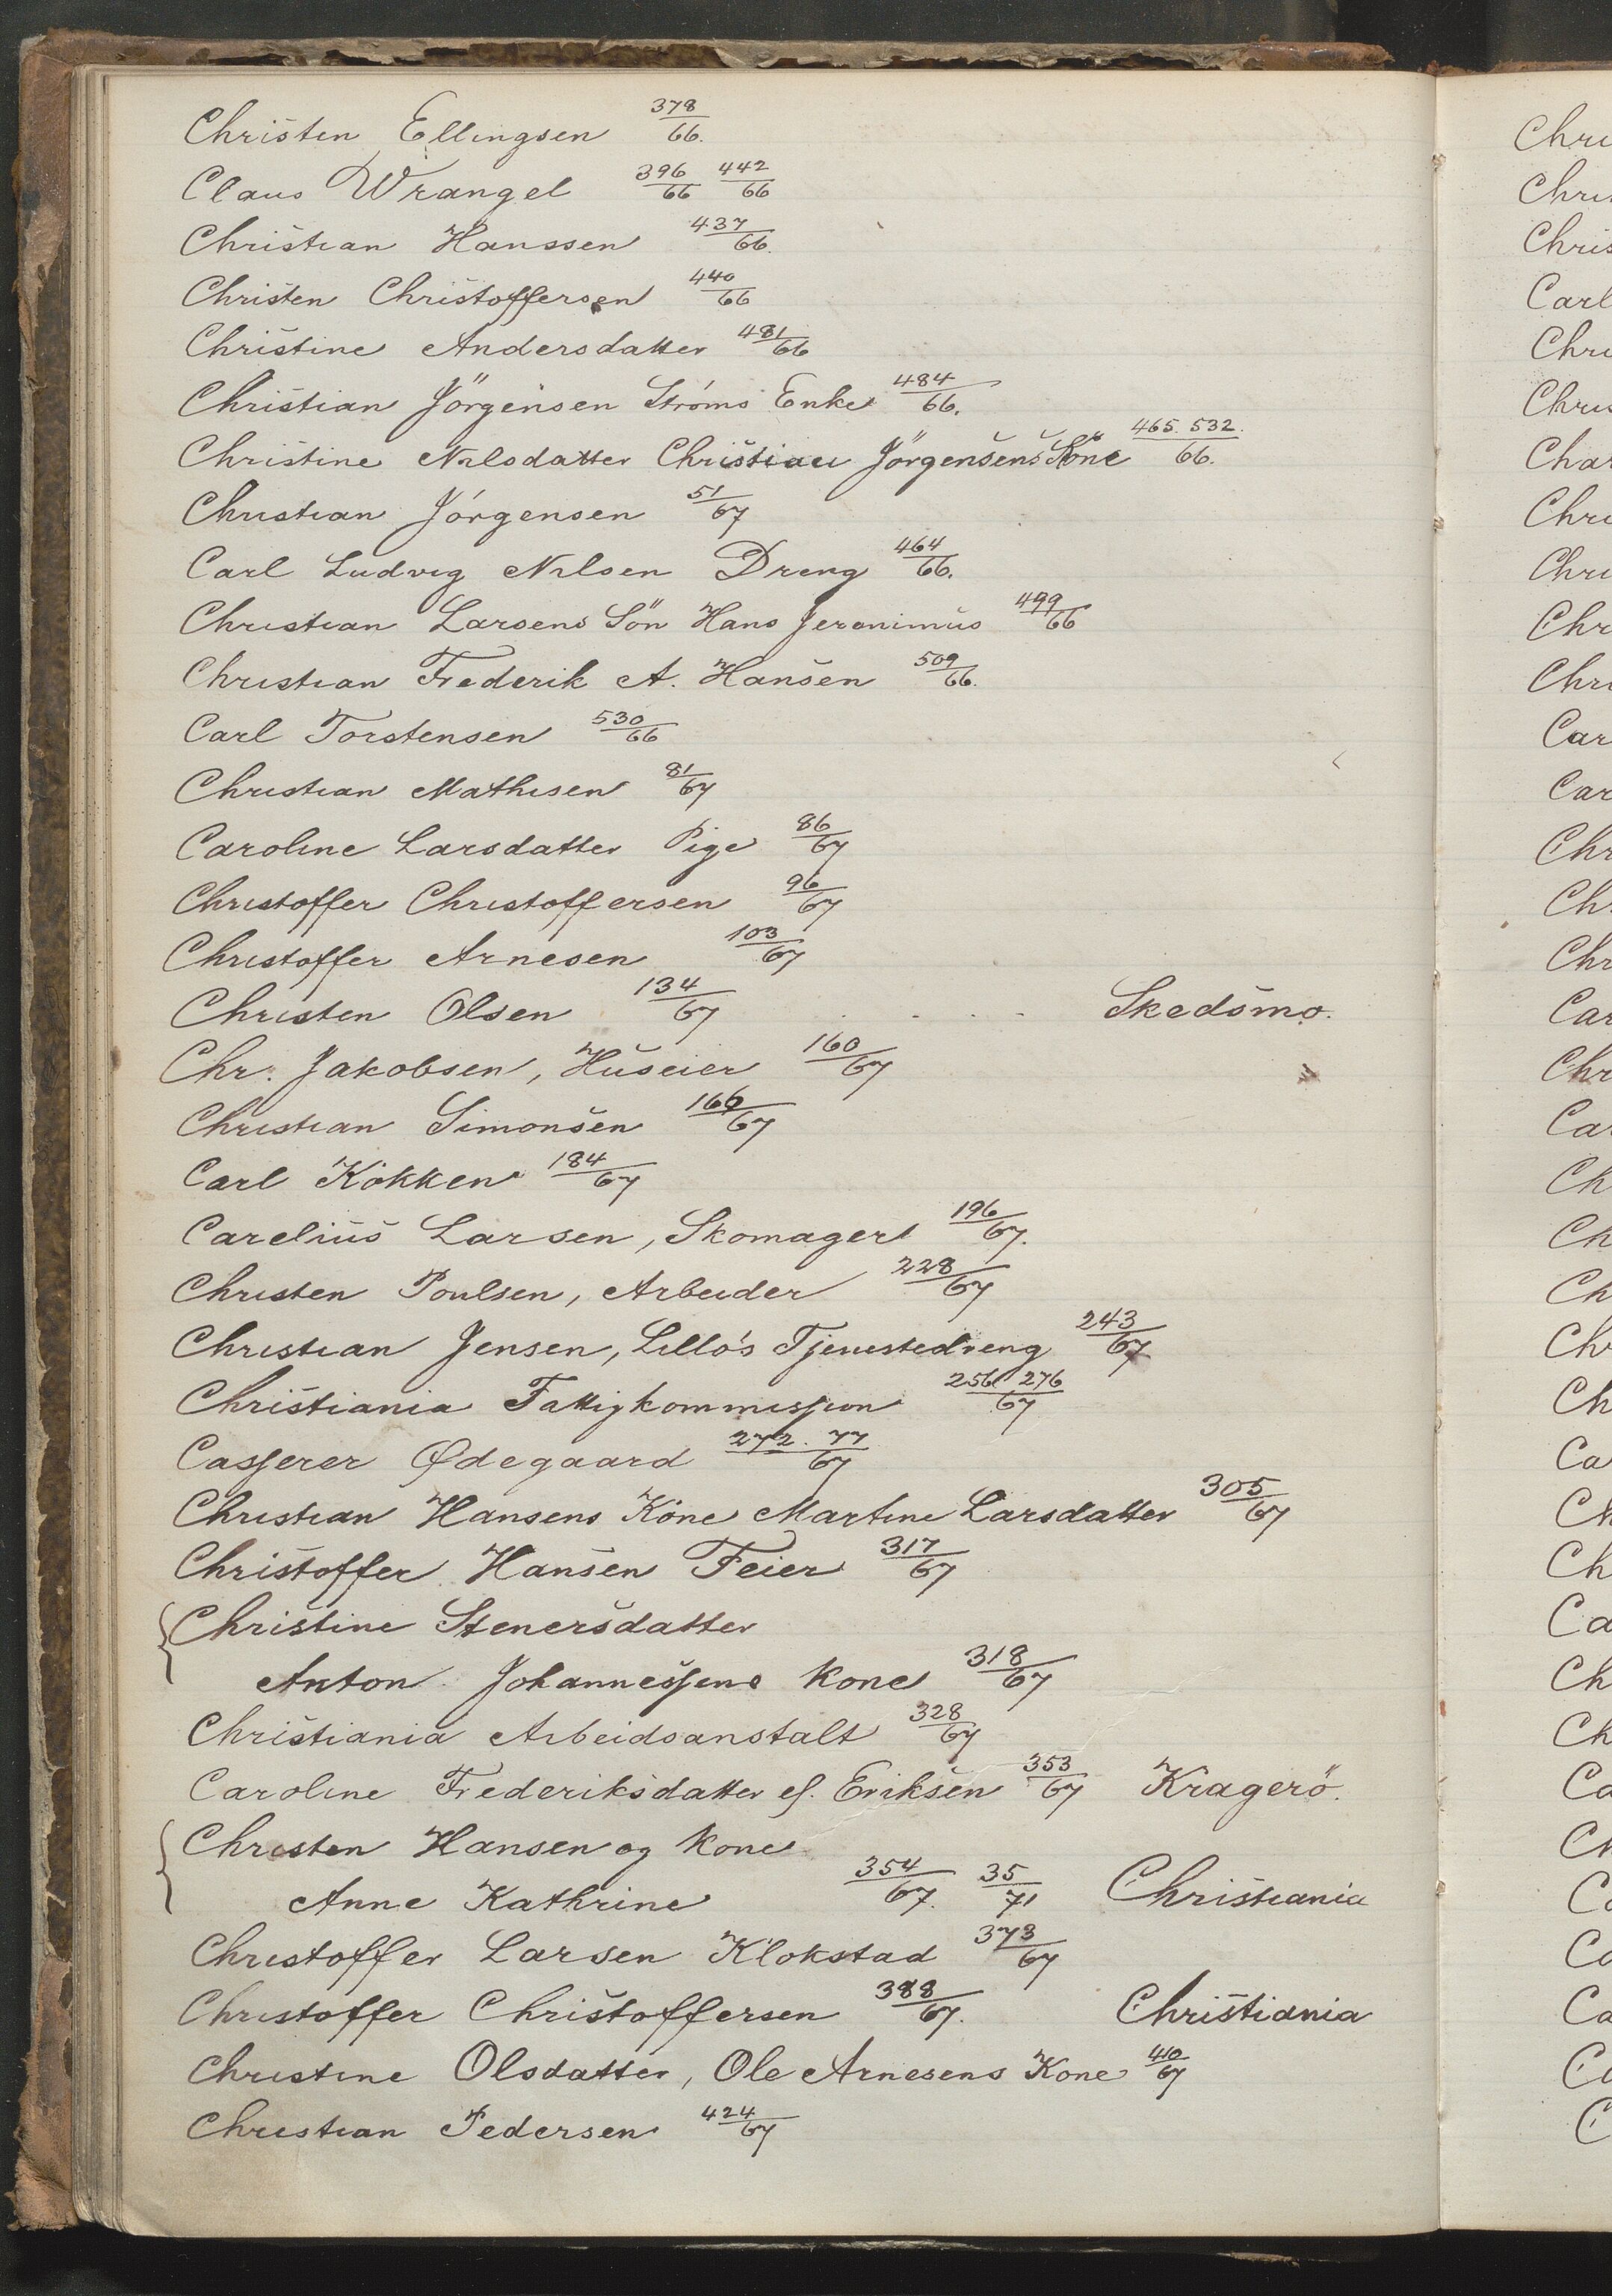 Christen Ellingsen 378/66.
Claus Wrangel 396/66 442/66
Christian Hanssen 437/66.
Christen Christoffersen 440/66
Christine Andersdatter 481/66
Christian Jörgensen Ströms Enke 484/66.
Christine Nilsdatter Christian Jörgensens Kone 465. 532./66.
Christian Jörgensen 51/67
Carl Ludvig Nilsen Dreng 464/66.
Christian Larsens Sön Hans Jeronimus 499/66
Christian Frederik A. Hansen 509/66.
Carl Torstensen 530/66
Christian Mathisen 81/67
Caroline Larsdatter Pige 86/67
Christoffer Christoffersen 96/67
Christoffer Arnesen 103/67
Christen Olsen 134/67 . . . . Skedsmo.
Chr. Jakobsen, Huseier 160/67
Christian Simonsen 166/67
Carl Kökken 184/67
Carelius Larsen, Skomager 196/67.
Christen Poulsen, Arbeider 228/67
Christian Jensen, Lillo's Tjenestedreng 243/67
Christiania Fattigkommission 256 276/67
Casserer Ødegaard 272. 77/67
Christian Hansens Kone Martine Larsdatter 305/67
Christoffer Hansen Feier 317/67
Christine Stenersdatter
Anton Johannessens Kone 318/67
Christiania Arbeidsanstalt 328/67
Caroline Frederiksdatter el. Eriksen 353/67 Kragerö.
Christen Hansen og Kone
Anne Kathrine 354/67. 35/71 Christiania
Christoffer Larsen Klokstad 373/67
Christoffer Christoffersen 388/67. Christiania
Christine Olsdatter, Ole Arnesens Kone 410/67
Christian Pedersen 424/67